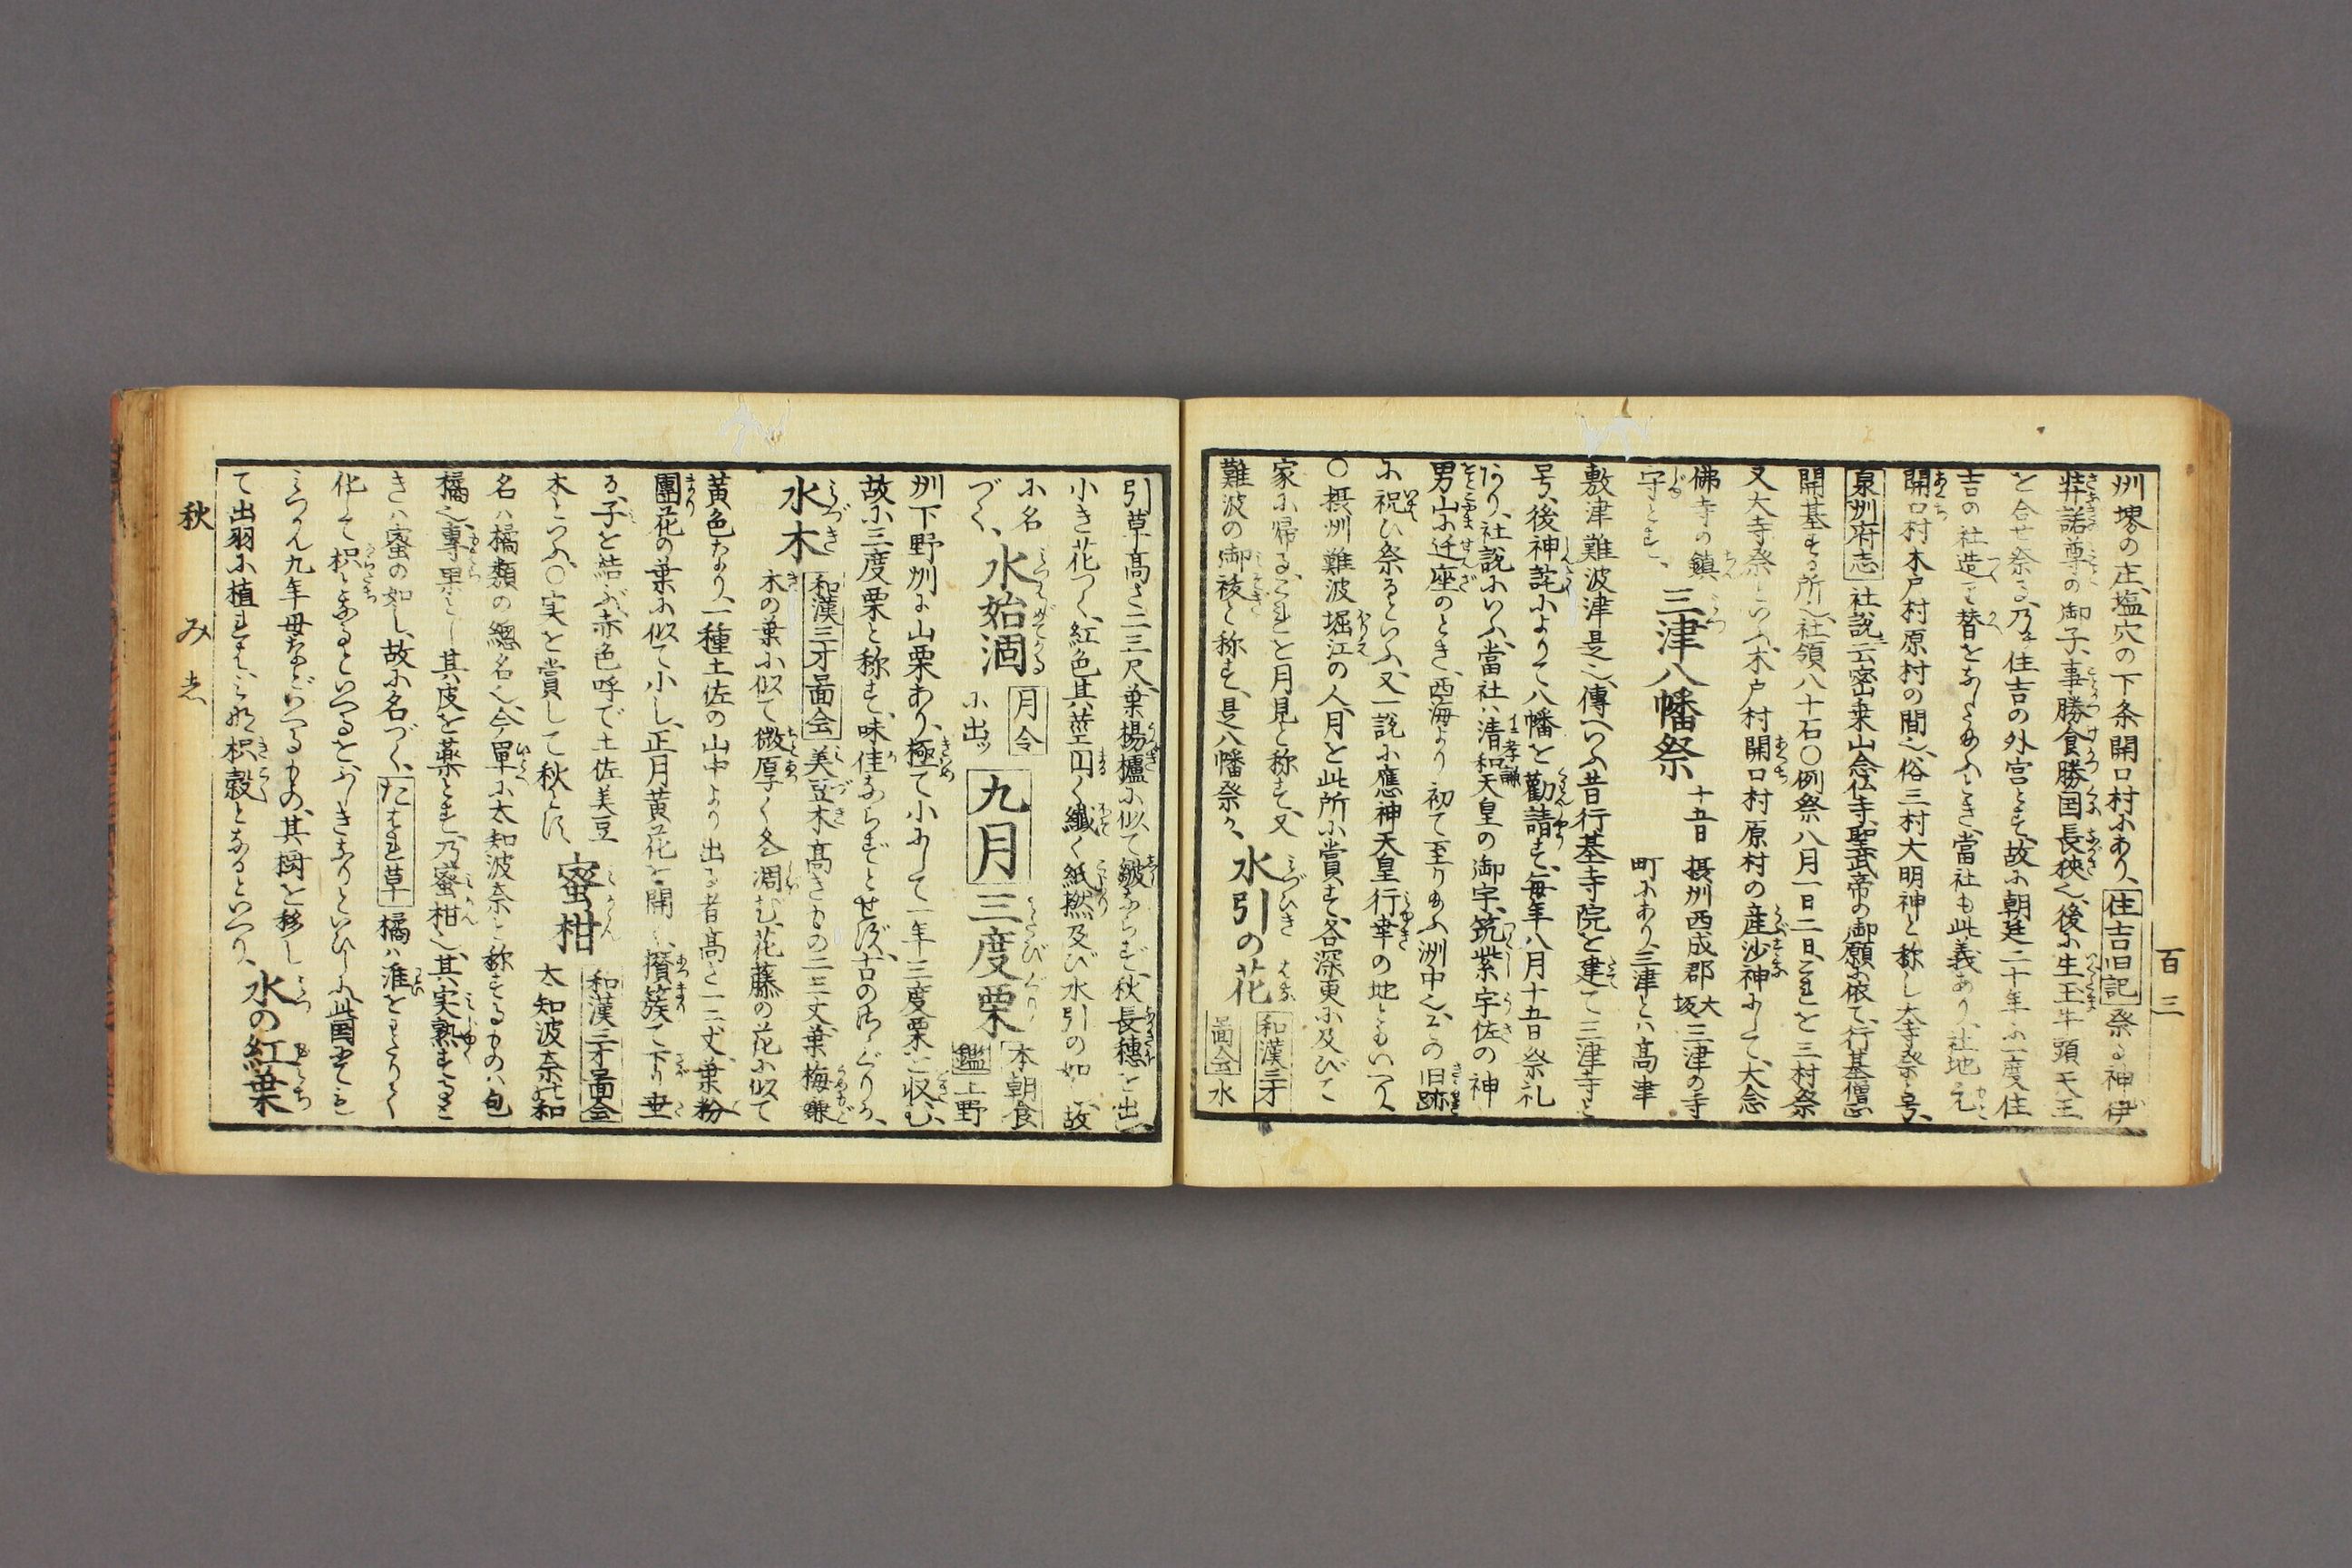 百三
州堺の庄塩穴の下条開口村にあり、住吉旧記祭る神伊
弉諾尊の御子、事勝食勝国長狭也、後に生玉牛頭天王
を合せ祭る、乃ち住吉の外宮とす、故に朝廷二十年に一度住
吉の社造り替をなしたまふとき、當社も此義あり、社地元
開口村木戸村原村の間也、俗三村大明神と称し大寺祭と号、
泉州府志社説云密乗山念仏寺聖武帝の御願に依て、行基僧正
開基する所也、社領八十石〇例祭八月一日二日、これを三村祭
又大寺祭といふ、木戸村開口村原村の産沙神にして、大念
佛寺の鎮
守とす、
三津八幡祭
十五日 摂州西成郡大坂三津の寺
町にあり、三津とは高津
敷津難波津是也、傳へいふ昔行基寺院を建て三津寺と
号、後神託によりて八幡を勧請す、毎年八月十五日祭礼
あり、社説にいふ、當社は清和天皇の御宇、筑紫宇佐の神
男山に迁座のとき、西海より初て至りたまふ洲中也、この旧跡
に祝ひ祭るといふ、又一説に應神天皇行幸の地ともいへり、
〇摂州難波堀江の人、月を此所に賞す、各深更に及びて
家に帰る、これを月見と称す、又
難波の御祓と称す、是八幡祭か、
水引の花
和漢三才
圖会 水
引草高さ二三尺、葉楊櫨に似て皺あらず、秋長穗を出し、
小き花つく、紅色其莖円く纖く紙撚及び水引の如し、故
に名
づく、
水始涸
月令
に出ッ
九月
三度栗
本朝食
鑑上野
州下野州に山栗あり、極て小にして一年三度栗を収む、
故に三度栗と称す、味佳ならずとせず、古のさゝぐりか、
水木
和漢三才圖会美豆木高きもの二三丈、葉梅嫌
木の葉に似て微厚く冬凋む、花藤の花に似て
黄色なり、一種土佐の山中より出る者高さ一二丈、葉粉
團花の葉に似て小し、正月黄花を開く、攅簇て下り垂
る、子を結ぶ、赤色呼で土佐美豆
木といふ、〇実を賞して秋とす、
蜜柑
和漢三才圖会
太知波奈花和
名は橘類の總名也、今單に太知波奈と称するものは包
橘也、專果とし其皮を薬とす、乃蜜柑也、其実熟するとき
きは蜜の如し、故に名づく、たはれ草橘は淮をわたりて
化して枳となるといへるを、ふしきなりといひしに、此国にても
みつかん九年母などいへるもの、其樹を移し
て出羽に植ればみな枳殻となるといへり、
水の紅葉
秋 み し